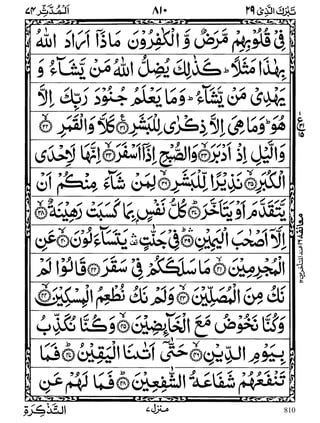 تَبٰرَكَ الَّذِیْ ٢٩
٨١٠
اَلْمُدَّثِّر ٧٤
فِیْ قُلُوْبِهِمْ مَّرَضٌ وَّ الْكٰفِرُوْنَ مَاذَاۤ اَرَادَ اللّٰهُ
بِهٰذَا مَثَلًا ؕ كَذٰلِكَ یُضِلُّ اللّٰهُ مَنْ یَّشَآءُ وَ
یَهْدِیْ مَنْ یَّشَآءُ ؕ وَمَا یَعْلَمُ جُنُوْدَ رَبِّكَ اِلَّا
هُوَ ؕ وَمَا هِیَ اِلَّا ذِكْرٰی لِلْبَشَرِ ﴿٣١﴾ كَلَّا وَالْقَمَرِ ﴿٣٢﴾
وَالَّیْلِ اِذْ اَدْبَرَ ﴿٣٣﴾ وَالصُّبْحِ اِذَاۤ اَسْفَرَ ﴿٣٤﴾ اِنَّهَا لَاِحْدَی
الْكُبَرِ ﴿٣٥﴾ نَذِیْرًا لِّلْبَشَرِ ﴿٣٦﴾ لِمَنْ شَآءَ مِنْكُمْ اَنْ
یَّتَقَدَّمَ اَوْ یَتَاَخَّرَ ﴿٣٧﴾ كُلُّ نَفْسٍۭ بِمَا كَسَبَتْ رَهِیْنَةٌ ﴿٣٨﴾
اِلَّاۤ اَصْحٰبَ الْیَمِیْنِ ﴿٣٩﴾ فِیْ جَنّٰتٍ یَتَسَآءَلُوْنَ ﴿٤٠﴾ عَنِ
الْمُجْرِمِیْنَ ﴿٤١﴾ مَا سَلَكَكُمْ فِیْ سَقَرَ ﴿٤٢﴾ قَالُوْا لَمْ
نَكُ مِنَ الْمُصَلِّیْنَ ﴿٤٣﴾ وَلَمْ نَكُ نُطْعِمُ الْمِسْكِیْنَ ﴿٤٤﴾
وَكُنَّا نَخُوْضُ مَعَ الْخَآئِضِیْنَ ﴿٤٥﴾ وَكُنَّا نُكَذِّبُ
بِیَوْمِ الدِّیْنِ ﴿٤٦﴾ حَتّٰۤی اَتٰىنَا الْیَقِیْنُ ﴿٤٧﴾ فَمَا
تَنْفَعُهُمْ شَفَاعَةُ الشّٰفِعِیْنَ ﴿٤٨﴾ فَمَا لَهُمْ عَنِ
التَّذْكِرَةِ
منزل ٧
810